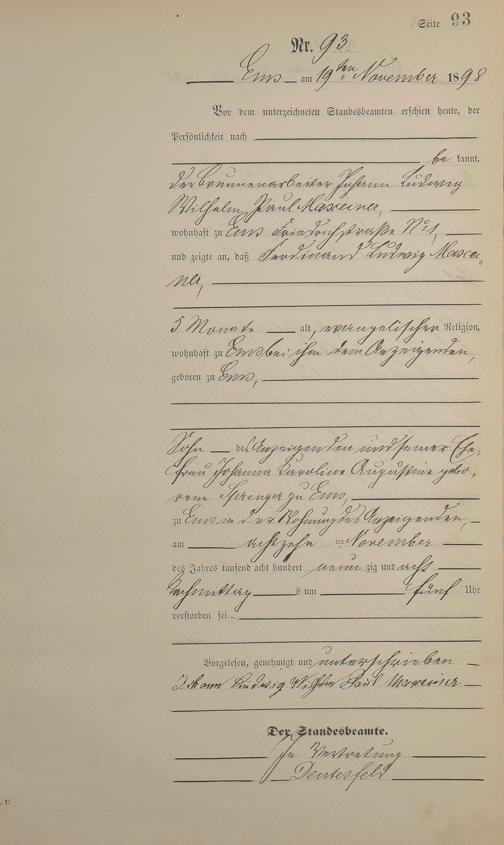 Seite 93
Nr. 93
Ems am 19ten November 1898
Vor dem unterzeichneten Standesbeamten erschien heute, der
Persönlichkeit nach
be kannt,
der Brunnenarbeiter Johann Ludwig
Wilhelm Paul Maxeiner,
wohnhaft zu Ems Friedrichstraße No 1,
und zeigte an, daß Ferdinand Ludwig Maxei-
ner,
5 Monate alt, evangelischer Religion,
wohnhaft zu Ems bei ihm dem Anzeigenden,
geboren zu Ems,
Sohn des Anzeigenden und seiner Ehe-
frau Johanna Karoline Augustine gebo-
rene Sprenger zu Ems,
zu Ems in der Wohnung des Anzeigenden,
am achtzehn im November
des Jahres tausend acht hundert neun zig und acht
Nachmittag s um fünf Uhr
verstorben sei.
Vorgelesen, genehmigt und unterschrieben
Johann Ludwig Wilhelm Paul Maxeiner
Der Standesbeamte.
In Vertretung